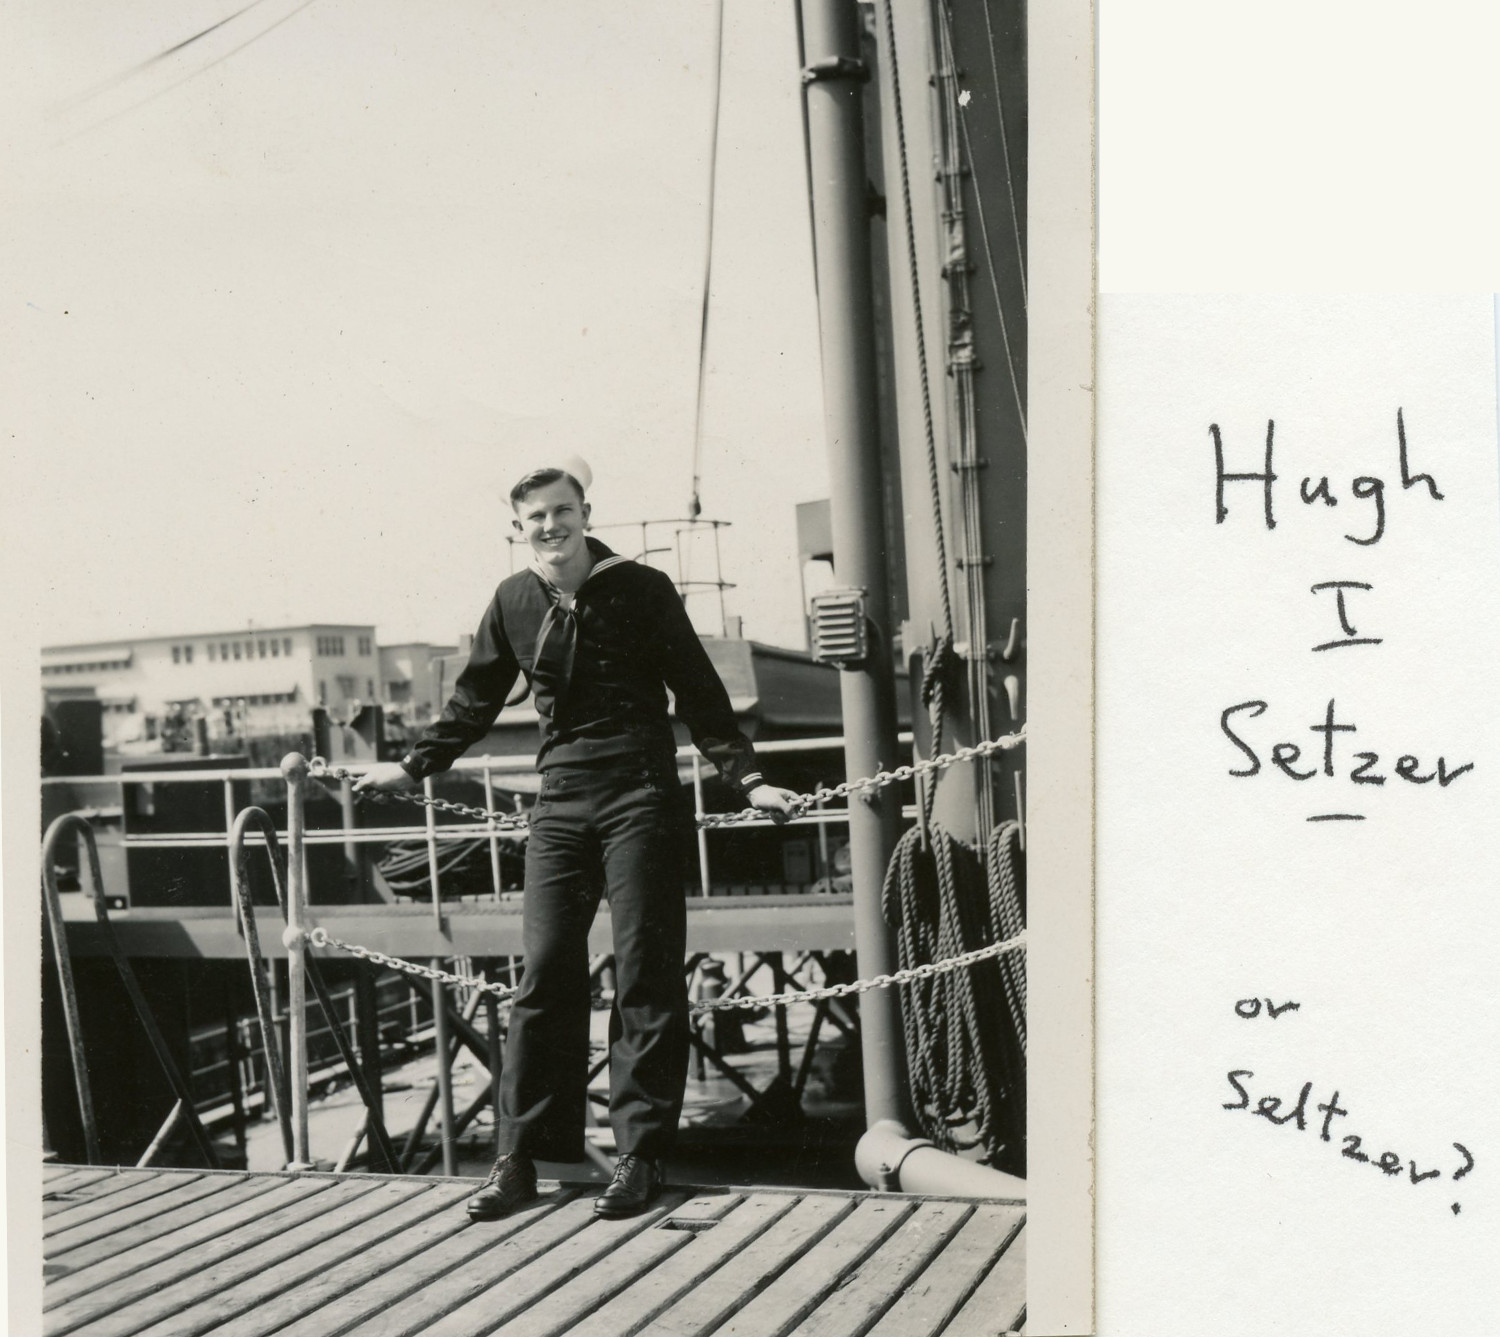 Hugh
I
Setzer
or
Seltzer?